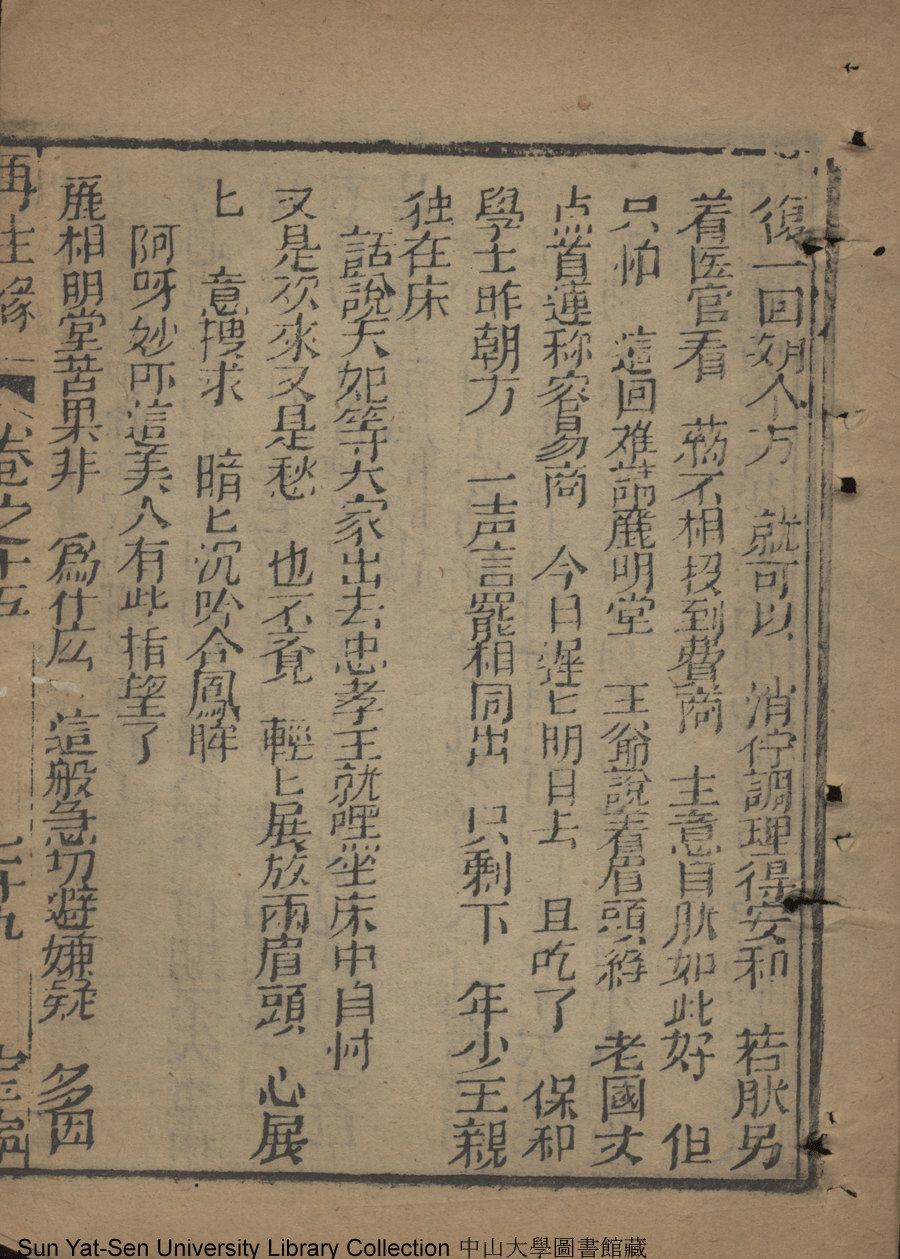 復一回朔人方　就可以　消停調理得安和　若脉另
着医官看　葯不相投到費商　主意自脉如此好　但
只怕　這回难請麗明堂　王爺說着眉頭縐　老國丈
点首連称容易商　今日遲匕明日去　且吃了　保和
學士昨朝方　一声言罷相同出　只剩下　年少王親
独在床
話說太妃等大家出去忠孝王就哩坐床中自忖
又是欢來又是愁　也不竟　輕匕展放兩眉頭　心展
匕　意搜求　暗匕沉吟合鳳眸
阿呀妙吓這美人有此指望了
麗相明堂苦果非　爲什庅　這般急切避嫌疑　多因
再生縁　卷之十五　七十九
Sun Yat-Sen University Library Collection 中山大學圖書館藏